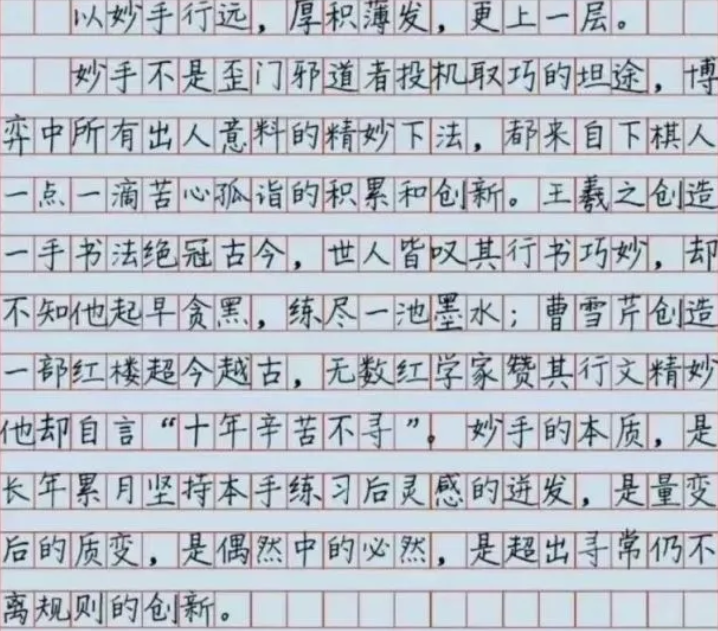 以妙手行远，厚积薄发，更上一层。
妙手不是歪门邪道者投机取巧的坦途，博
弈中所有出人意料的精妙下法，都来自下棋人
一点一滴苦心孤诣的积累和创新。王羲之创造
一手书法绝冠古今，世人皆叹其行书巧妙，却
不知他起早贪黑，练尽一池墨水；曹雪芹创造
一部红楼超今越古，无数红学家赞其行文精妙
他却自言“十年辛苦不寻”。妙手的本质，是
长年累月坚持本手练习后灵感的迸发，是量变
后的质变，是偶然中的必然，是超出寻常仍不
离规则的创新。